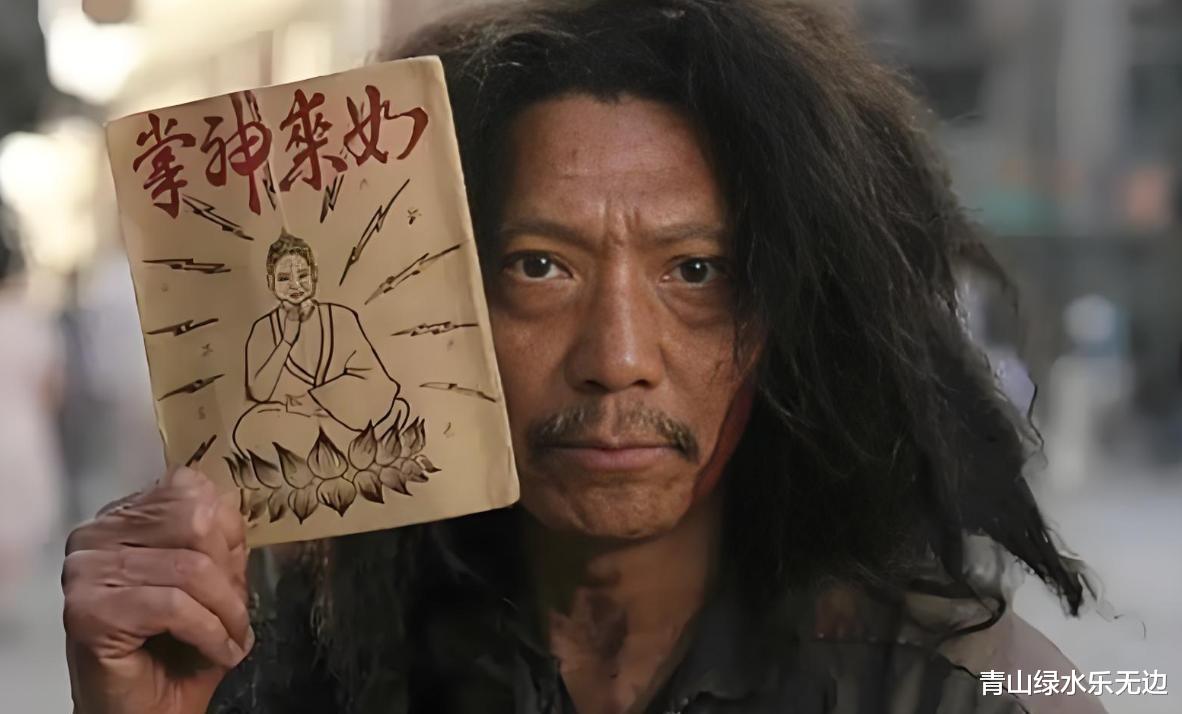 如來神掌
青山绿水乐无边